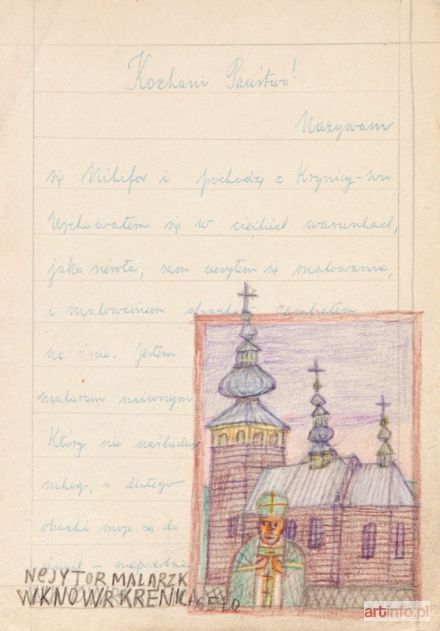 Kochani Państwo!
Nazywam
się Nikifor i pochodzę z Krynicy-wsi.
Wychowałem się w ciężkich warunkach,
jako sierota, sam uczyłem się malowania,
i malowaniem obrazków zarabiałem
na życie. Jestem
malarzem naiwnym
Który nie naśladuje
nikogo, a dlatego
obrazki moje są do
NEJYTOR MALARZK
WKNOWRKRENICA
artinfo.pl